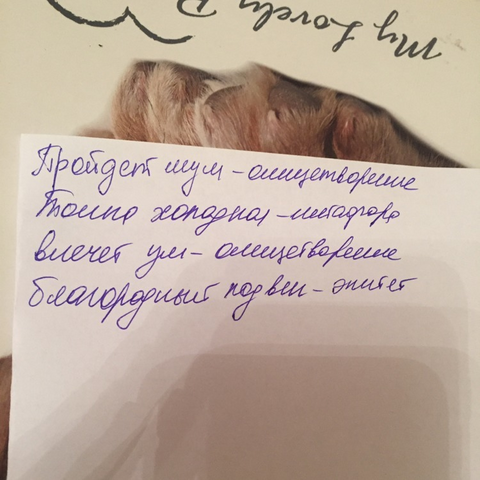 My Lovely
Пройдет шум - олицетворение
Толпа холодная - метафора
влечет ум - олицетворение
благородный подвиг - эпитет